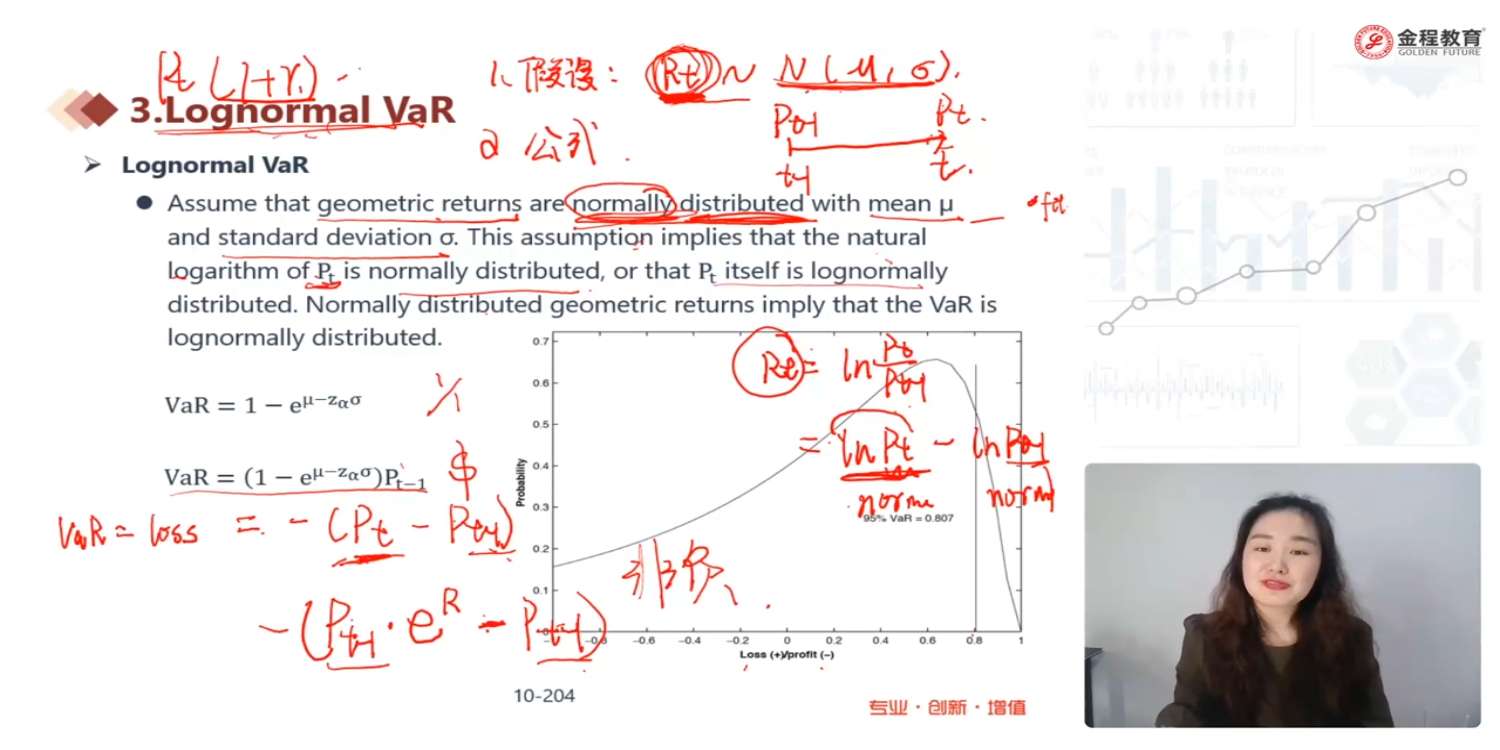 金程教育
GOLDEN FUTURE
Pt (1+r)
1. 假设: Rt ~ N(μ, σ).
3.Lognormal VaR
2 公式.
Pt-1 Pt.
t-1 t.
Lognormal VaR
Assume that geometric returns are normally distributed with mean μ
and standard deviation σ. This assumption implies that the natural
logarithm of Pt is normally distributed, or that Pt itself is lognormally
distributed. Normally distributed geometric returns imply that the VaR is
lognormally distributed.
VaR = 1 − e^μ−zασ
VaR = (1 − e^μ−zασ)Pt−1
$
VaR = loss = - (Pt - Pt-1)
- (Pt-1 · e^R - Pt-1)
Rt = ln Pt/Pt-1
= ln Pt - ln Pt-1
norm
norm
非负
0.7
0.6
0.5
0.4
0.3
0.2
0.1
Probability
95% VaR = 0.807
-0.8 -0.6 -0.4 -0.2 0 0.2 0.4 0.6 0.8 1
Loss (+)/profit (−)
10-204
专业·创新·增值